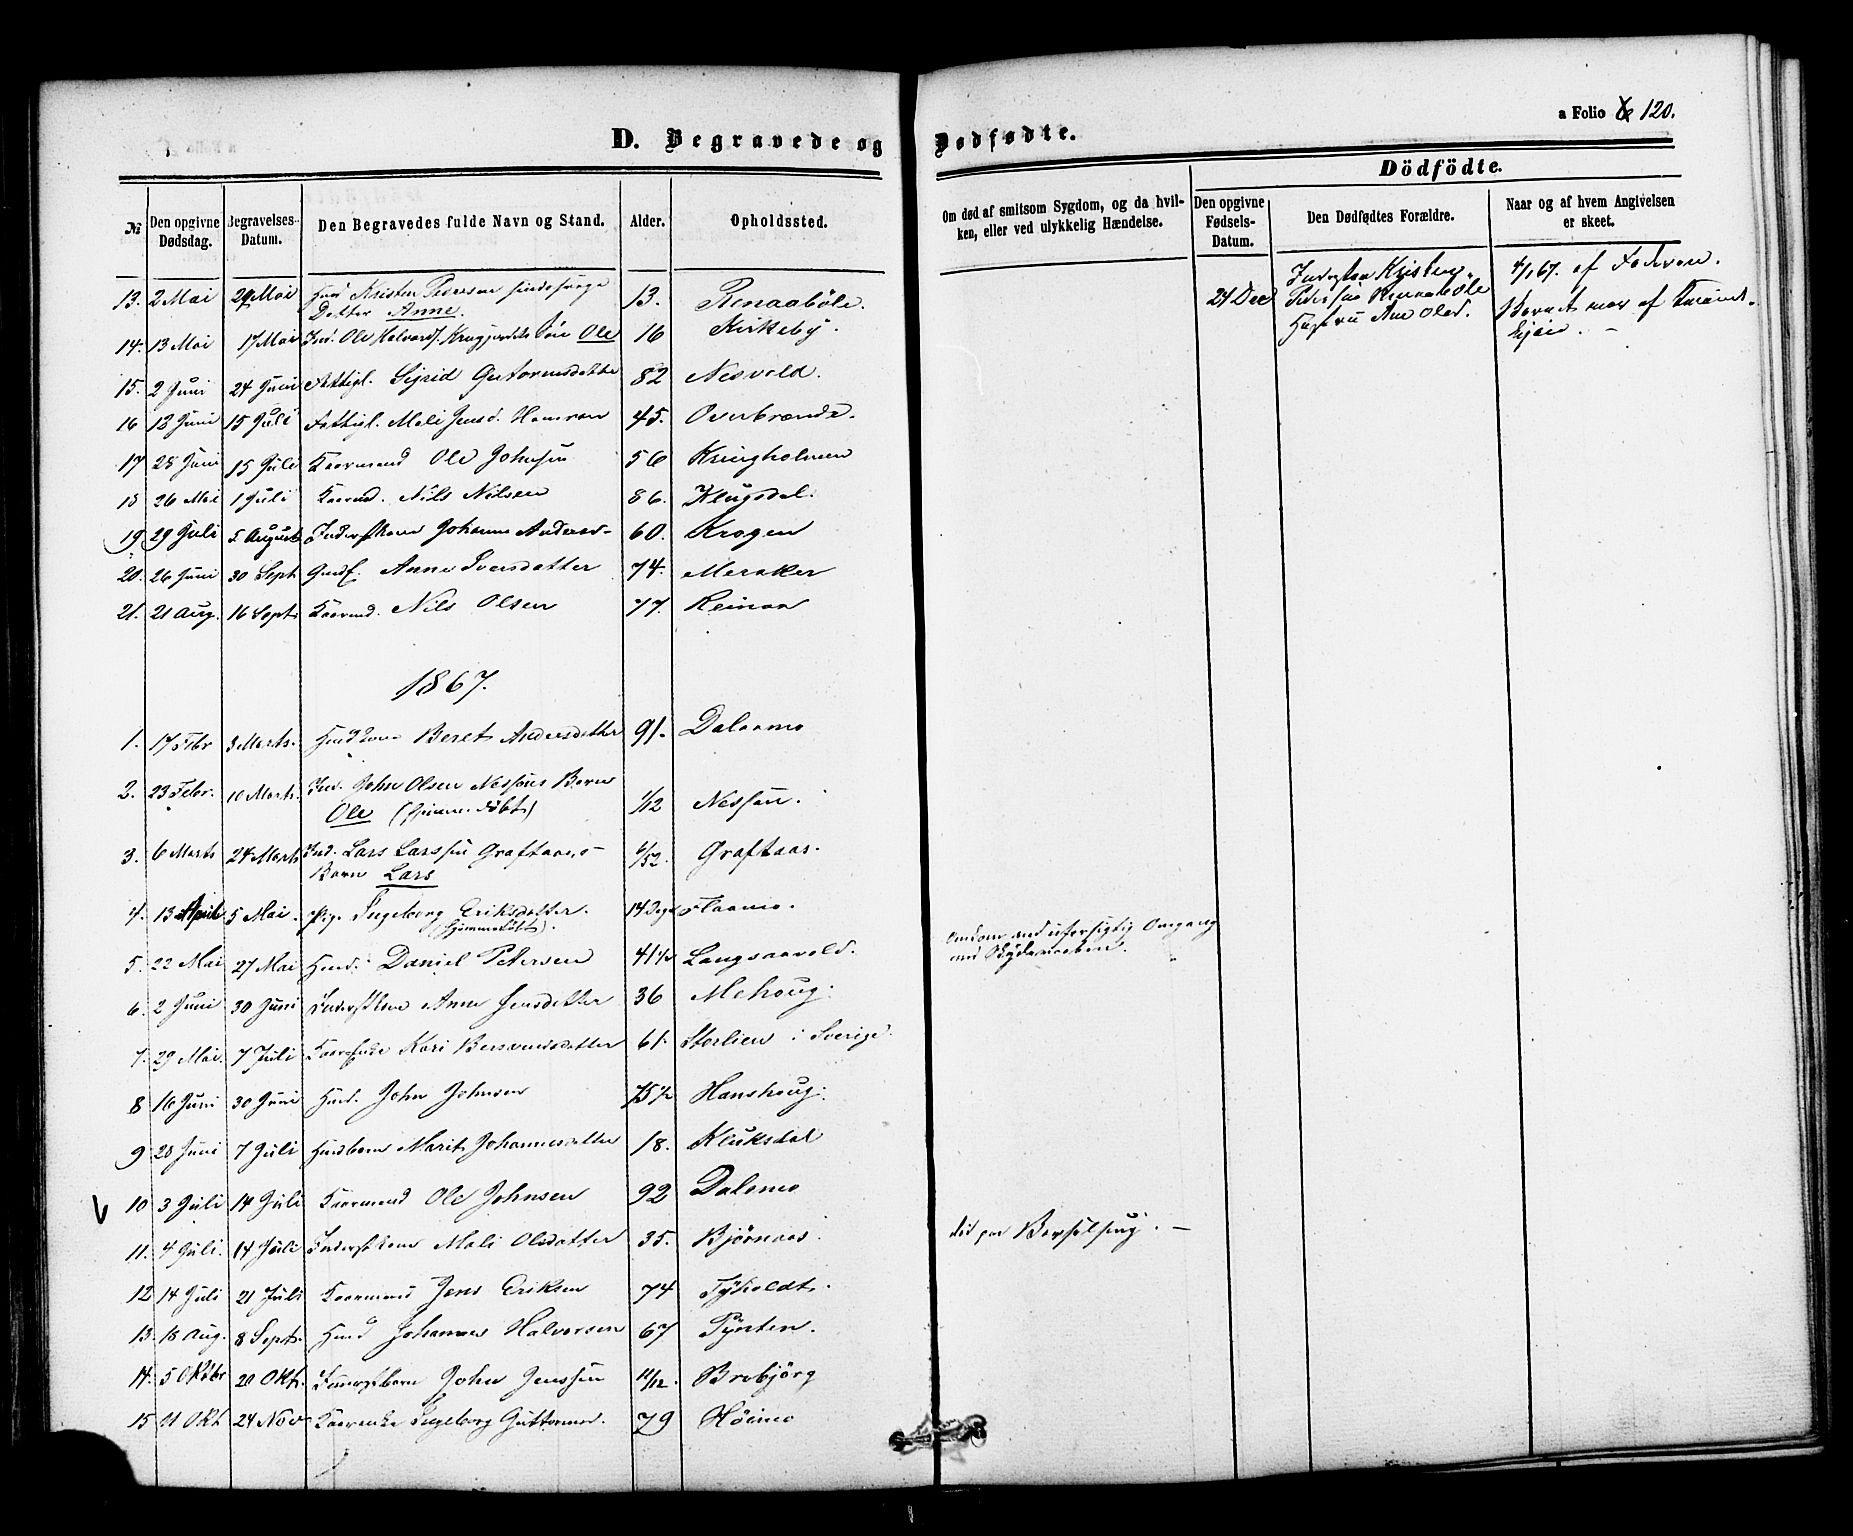 a Folio 120.
D. Begravede og Dødfødte.
Dödfödte.
№ Den opgivne Dødsdag. Begravelses-Datum. Den Begravedes fulde Navn og Stand. Alder. Opholdssted. Om død af smitsom Sygdom, og da hvilken, eller ved ulykkelig Hændelse. Den opgivne Fødsels-Datum. Den Dødfødtes Forældre. Naar og af hvem Angivelsen er skeet.
13. 2 Mai 29 Mai Kristen Pedersen 13. Renaaböle. 21 Dec Kristen 4/1 67. af Faderen.
Datter Anne. Renaaböle Barnet
14. 13 Mai 17 Mai Ind. Ole Halvors. Søn Ole 16 Kirkeby Hustru Ane Olsd.
15. 2 Juni 24 Juni Fattigl. Sigrid Gutormsdatter 82 Nesvold.
16 12 Juni 15 Juli Fattigl. Mali Jensd. 45. Overbrende.
17 25 Juni 15 Juli Kaarmand Ole Johnsen 56 Kringholmen
18 26 Mai 1 Juli Kaarmd. Nils Nilsen 86. Klugsdal.
19 29 Juli 5 August Inderstkone Johanne Andersd. 60. Krogen
20. 26 Juni 30 Sept Anne Iversdatter 74. Meraker
21. 21 Aug. 16 Sept. Kaarmd. Nils Olsen 77. Reinaa
1867.
1. 17 Febr 3 Marts. Beret Andersdatter 91. Dalaamo
2. 23 Febr. 10 Marts. Ind. John Olsen Barn
Ole (hjemmedøbt) 1/12
3. 6 Marts 24 Marts Ind. Lars Larssen Graftaas
Barn Lars /52. Graftaas.
4. 13 April 5 Mai. Pig. Ingeborg Eriksdatter. 14 Dage Flaamo.
(hjemmedøbt).
5. 22 Mai 27 Mai Husd. Daniel Petersen 41 Langsaavold. uforsigtig Omgang
med Skydevaaben.
6. 2 Juni 30 Juni Inderstkone Anne Jensdatter 36 Mehoug.
7. 29 Mai. 7 Juli Kari 61. Storlien i Sverige.
8 16 Juni 30 Juni Husd. John Johnsen 75 Hanshoug.
9 28 Juni 7 Juli Husbarn Marit Johannesdatter 18. Kluksdal
10 3 Juli 14 Juli Kaarmand Ole Johnsen 92 Dalamo
11. 4 Juli. 14 Juli Inderstkone Mali Olsdatter 35. Bjørnaas. død paa Barselseng. —
12 14 Juli 21 Juli Kaarmand Jens Eriksen 74 Tyholdt.
13. 18 Aug. 8 Sept. Husd Johannes Halvorsen 67 Pynten.
14. 5 Oktbr 20 Okt. Inderstbarn John Jenssen 11/12. Brebjörg
15 Okt 24 Nov Ingeborg Guttormsd. 79 Höimo